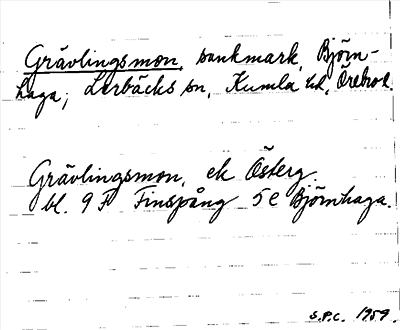 Grävlingsmon, sankmark, Björn-
haga; Lerbäcks sn, Kumla hd, Örebro l.
Grävlingsmon, ek Österg.
bl. 9 F Finspång 5 e Björnhaga.
S.P.C. 1959.